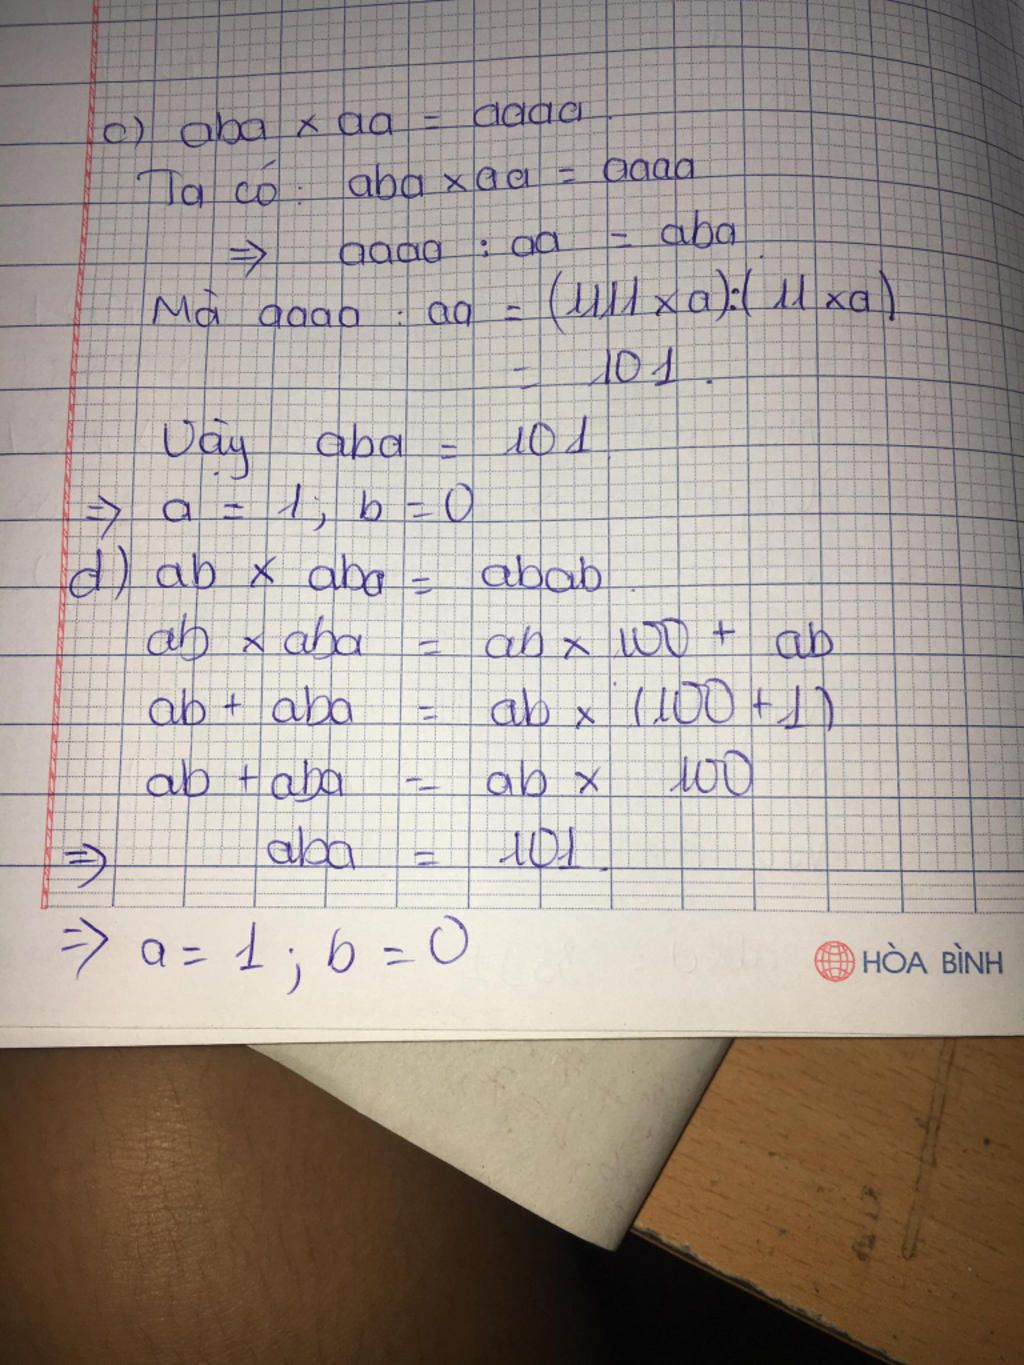 c) aba x aa = aaaa.
Ta có: aba x aa = aaaa
⇒ aaaa : aa = aba.
Mà aaaa : aa = (1111 x a):( 11 x a)
= 101.
Vậy aba = 101
⇒ a = 1; b = 0
d) ab x aba = abab.
ab x aba = ab x 100 + ab
ab + aba = ab x (100 + 1)
ab + aba = ab x 100
⇒ aba = 101.
⇒ a = 1; b = 0
HÒA BÌNH